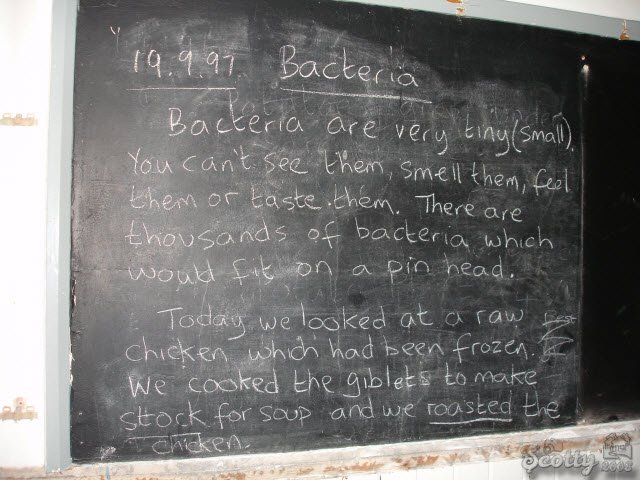 19.9.97. Bacteria
Bacteria are very tiny (small).
You can't see them, smell them, feel
them or taste them. There are
thousands of bacteria which
would fit on a pin head.
Today we looked at a raw
chicken which had been frozen.
We cooked the giblets to make
stock for soup and we roasted the
chicken.
Scotty
2008